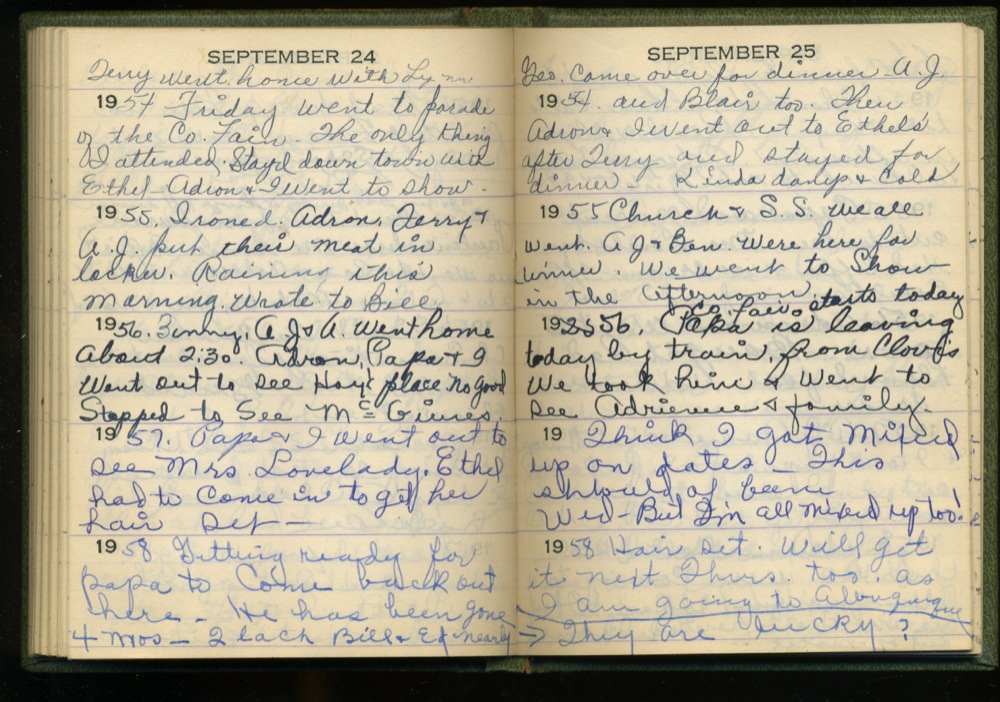 SEPTEMBER 24
Terry went home with
1954 Friday went to parade
of the Co. Fair - The only thing
I attended. Stay'd down town with
Ethel Adron & I went to show.
1955. Ironed. Adron, Terry &
A.J. put their meat in
locker. Raining this
morning. Wrote to Bill
1956. A J & A. Went home
About 2:30. Adron, Papa & I
Went out to see place No good
Stopped to See
1957. Papa & I went out to
see Mrs Lovelady. Ethel
had to Come in to get her
hair set -
1958 Getting ready for
papa to Come back out
here - He has been gone
4 mos - 2 each Bill & Ed nearly
SEPTEMBER 25
Geo. Came over for dinner - A.J.
1954. and Blair too. Then
Adron & I went out to Ethel's
after Terry and stayed for
dinner - Kinda damp & Cold
1955 Church & S.S. We all
went. A J & Ben. Were here for
dinner. We went to Show
in the afternoon.
Co. Fair starts today
1956. Papa is leaving
today by train, from Clovis
We took him & Went to
see Adrienne & family.
19 Think I got Mixed
up on dates - This
should of been
Wed - But I'm all mixed up too!
1958 Hair set. Will get
it next Thurs. too. as
I am going to Albuquerque
→ They are lucky?